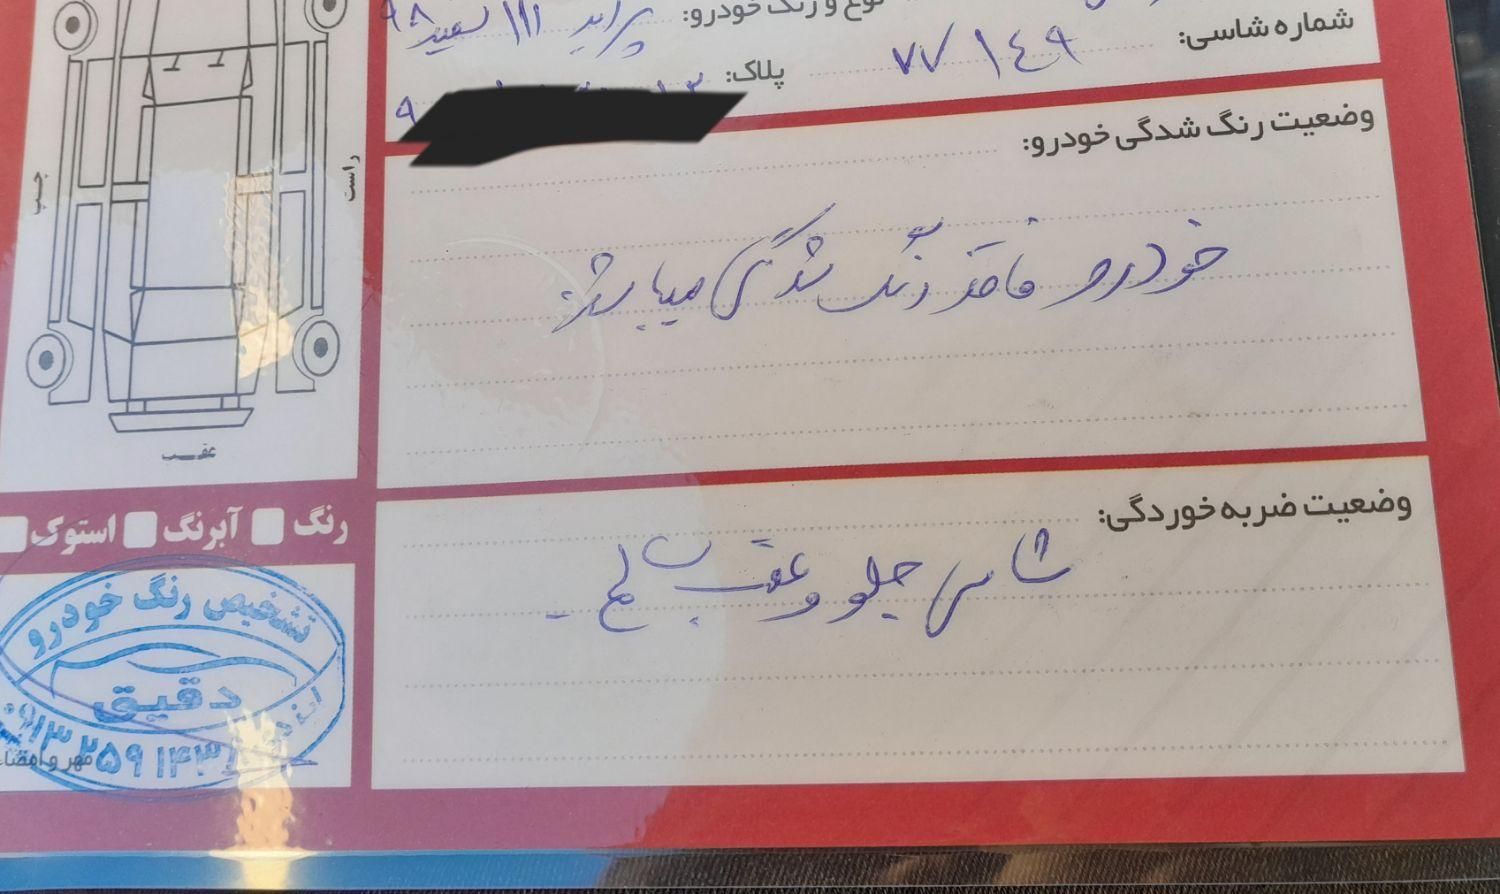 نوع و رنگ خودرو: پراید 111 سفید ۹۸
شماره شاسی: ۷۷۱۴۹
پلاک:
وضعیت رنگ شدگی خودرو:
خودرو فاقد رنگ شدگی میباشد.
وضعیت ضربه خوردگی:
شاسی جلو و عقب سالم -
چپ
راست
عقب
رنگ آبرنگ استوک
تشخیص رنگ خودرو
دقیق
۰۹۱۳ ۲۵۹ ۱۴۳۱
مهر و امضاء